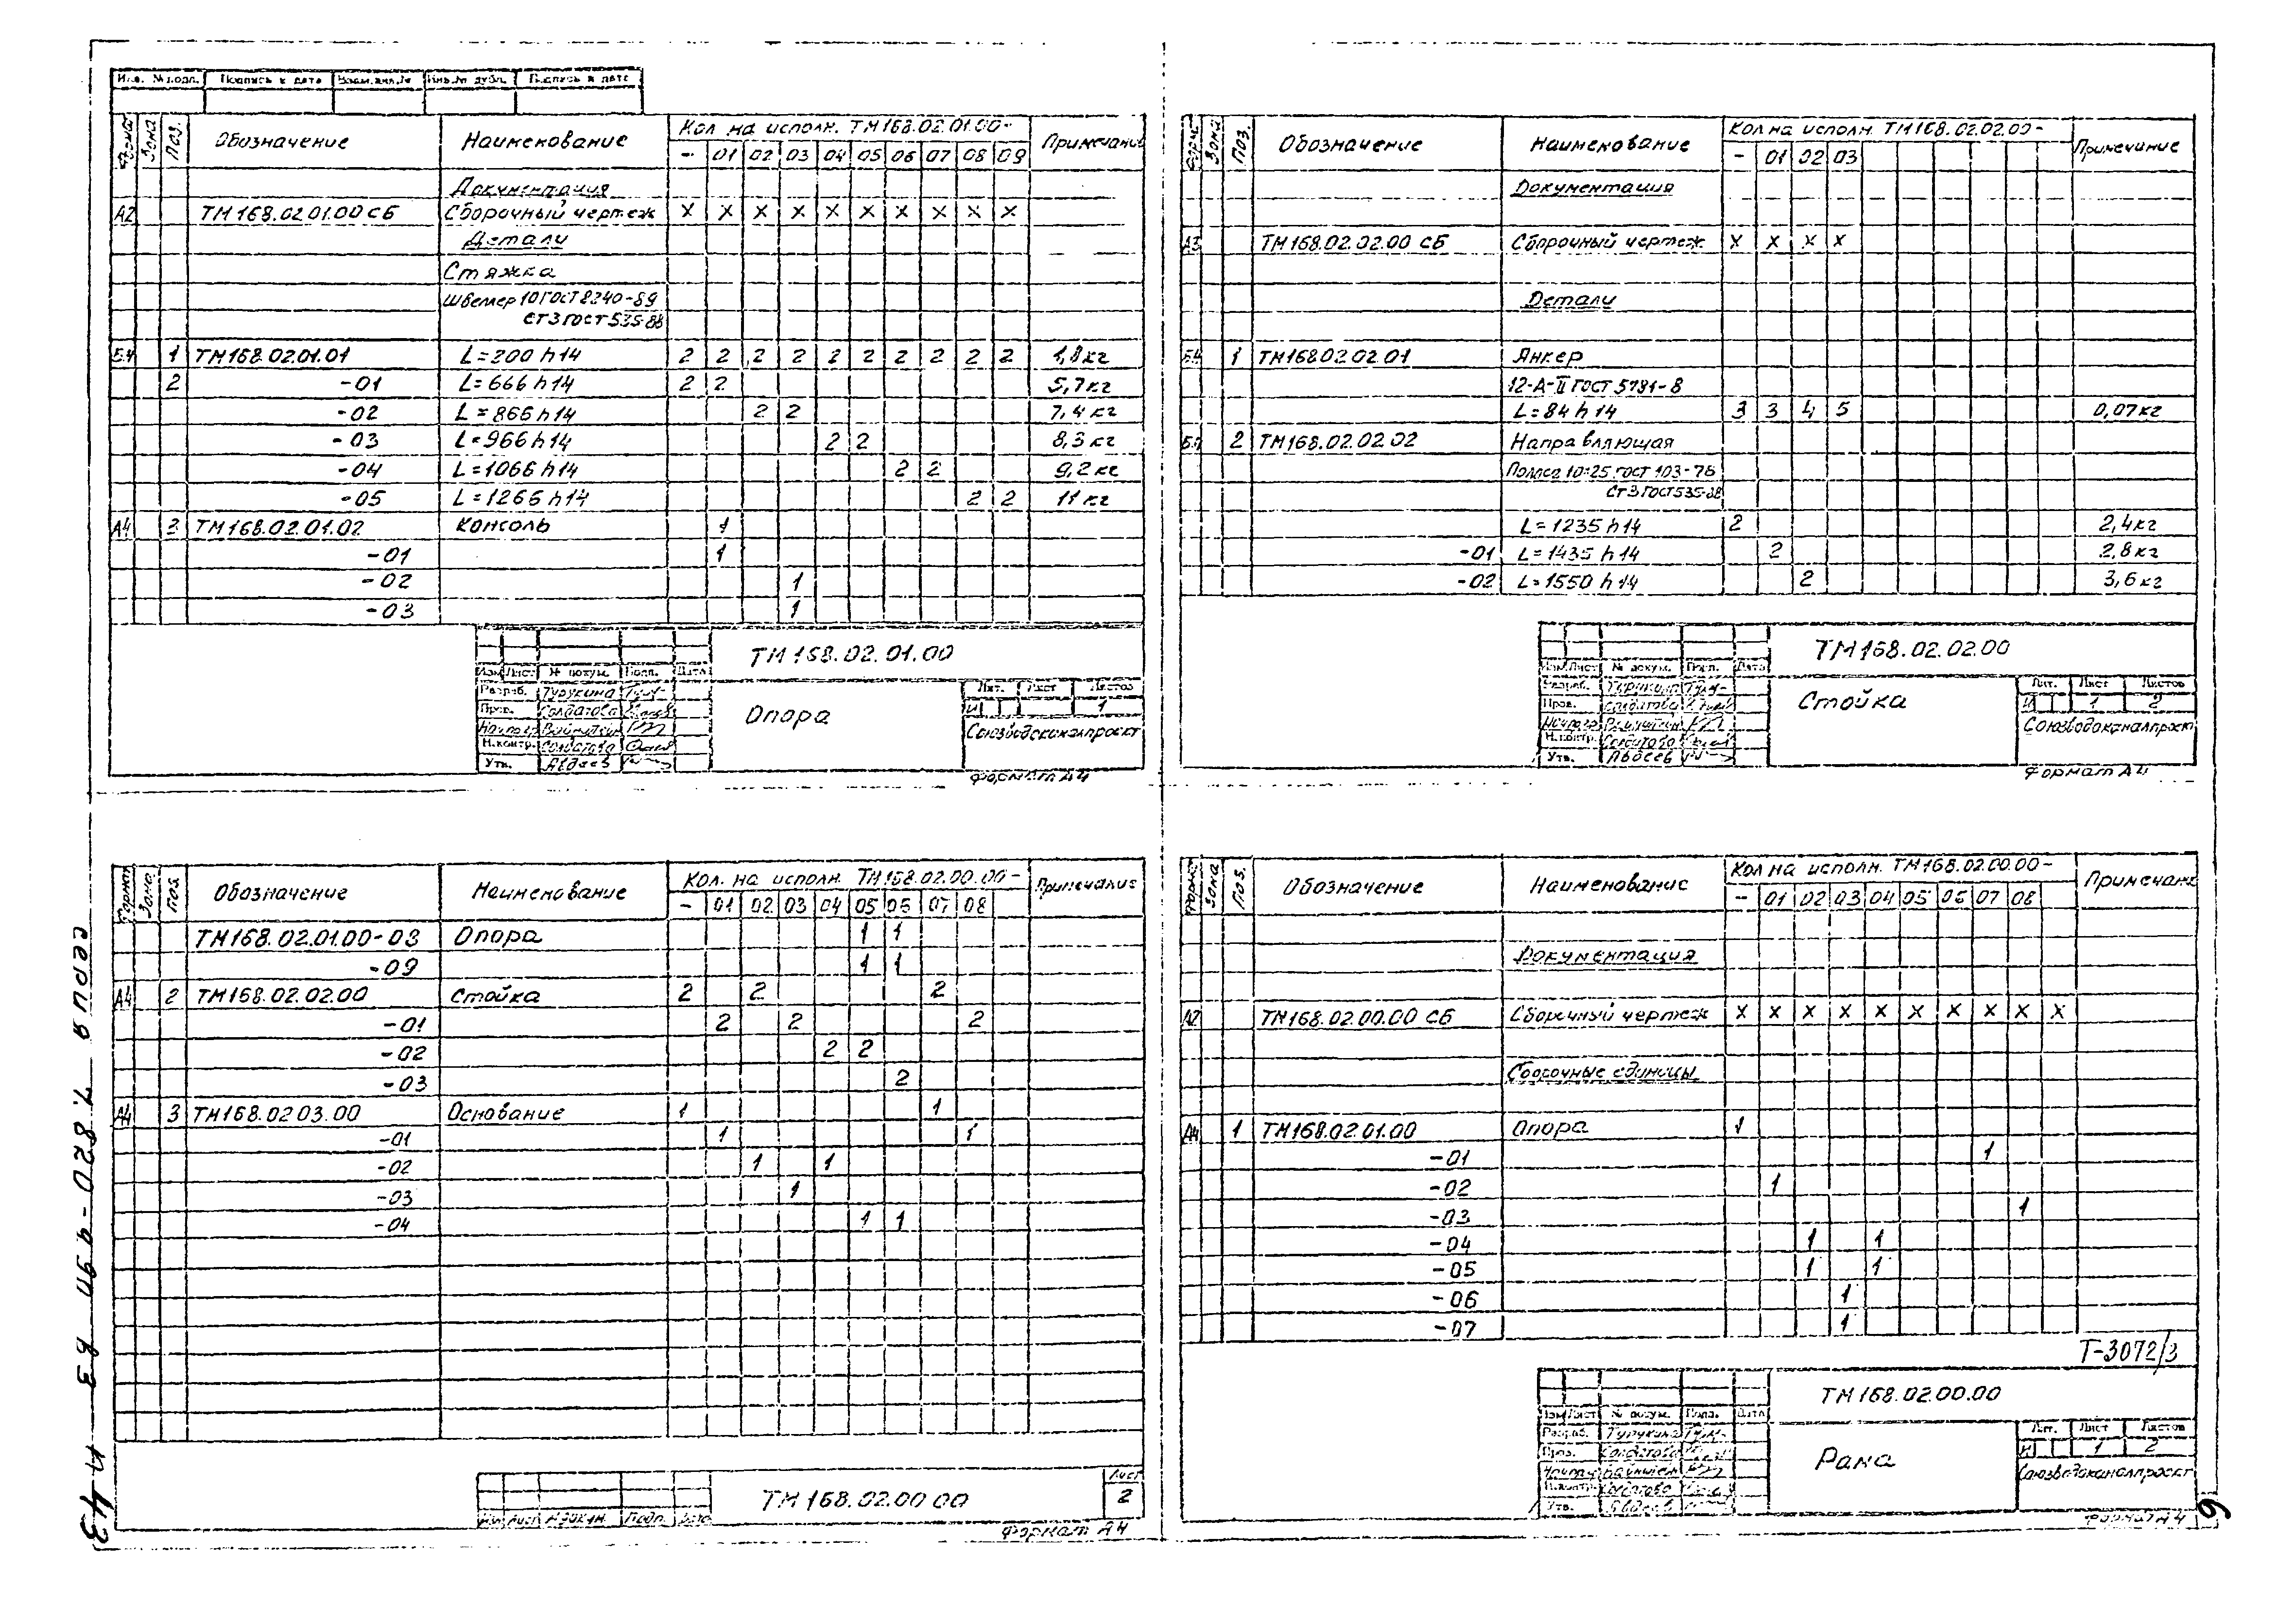 Инв. № подл. Подпись и дата Взам.инв.№ Инв.№ дубл. Подпись и дата
Формат Зона Поз. Обозначение Наименование Кол на исполн. ТМ168.02.01.00- Примечание
- 01 02 03 04 05 06 07 08 09
Документация
А2 ТМ 168.02.01.00 СБ Сборочный чертеж X X X X X X X X X X
Детали
Стяжка
Швеллер 10 ГОСТ 8240-89
Ст3 ГОСТ 535-88
Б.Ч 1 ТМ168.02.01.01 L=200 h14 2 2 2 2 2 2 2 2 2 2 1,8кг
2 -01 L=666 h14 2 2 5,7кг
-02 L=866 h14 2 2 7,4 кг
-03 L=966 h14 2 2 8,3 кг
-04 L=1066 h14 2 2 9,2 кг
-05 L=1266 h14 2 2 11 кг
А4 3 ТМ168.02.01.02 Консоль 1
-01 1
-02 1
-03 1
ТМ 168.02.01.00
Изм Лист № докум. Подп. Дата
Разраб. Турукина
Пров. Солдатова
Н.контр. Солдатова
Утв. Авдеев
Опора
Лит. Лист Листов
И 1
Союзводоканалпроект
Формат А4
Формат Зона Поз. Обозначение Наименование Кол на исполн. ТМ168.02.02.00- Примечание
- 01 02 03
Документация
А3 ТМ168.02.02.00 СБ Сборочный чертеж X X X X
Детали
Б.Ч 1 ТМ168.02.02.01 Анкер
12-А-II ГОСТ 5781-8
L=84 h14 3 3 4 5 0,07кг
Б.Ч 2 ТМ168.02.02.02 Направляющая
Полоса 10×25 ГОСТ 103-76
Ст3 ГОСТ 535-88
L=1235 h14 2 2,4кг
-01 L=1435 h14 2 2,8кг
-02 L=1550 h14 2 3,6кг
ТМ168.02.02.00
Изм Лист № докум. Подп. Дата
Разраб. Турукина
Пров. Солдатова
Н.контр. Солдатова
Утв. Авдеев
Стойка
Лит. Лист Листов
И 1 2
Союзводоканалпроект
Формат А4
Формат Зона Поз. Обозначение Наименование Кол. на исполн. ТМ168.02.00.00- Примечание
- 01 02 03 04 05 06 07 08
ТМ168.02.01.00-03 Опора 1 1
-09 1 1
А4 2 ТМ168.02.02.00 Стойка 2 2 2
-01 2 2 2
-02 2 2
-03 2
А4 3 ТМ168.02 03.00 Основание 1 1
-01 1 1
-02 1 1
-03 1
-04 1 1
ТМ 168.02.00 00
Лист
2
Изм Лист № докум. Подп. Дата
Формат А4
Формат Зона Поз. Обозначение Наименование Кол на исполн. ТМ168.02.00.00- Примечание
- 01 02 03 04 05 06 07 08
Документация
А2 ТМ168.02.00.00 СБ Сборочный чертеж X X X X X X X X X X
Сборочные единицы
А4 1 ТМ168.02.01.00 Опора 1
-01 1
-02 1
-03 1
-04 1 1
-05 1 1
-06 1
-07 1
Т-3072/3
ТМ 168.02.00.00
Изм Лист № докум. Подп. Дата
Разраб. Турукина
Пров. Солдатова
Н.контр. Солдатова
Утв. Авдеев
Рама
Лит. Лист Листов
И 1 2
Союзводоканалпроект
Формат А4
серия 7.820-9 ЭП В3 И 43
6